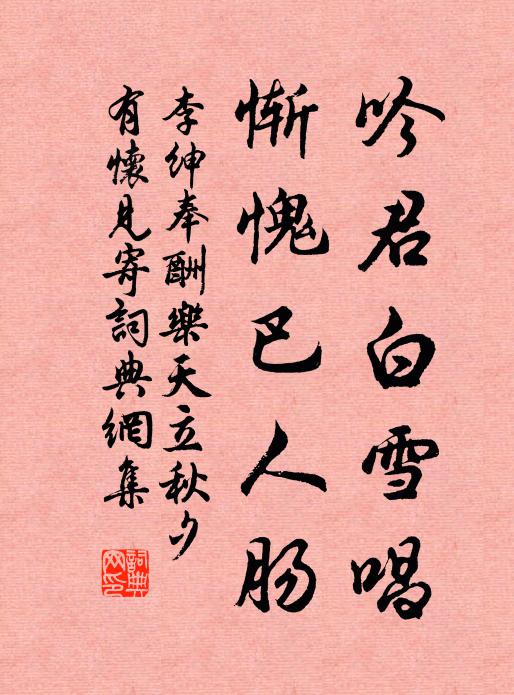 吟君白雪唱
惭愧巴人肠
李紳奉酬樂天立秋夕
有懷見寄詞典網集
詞典网印